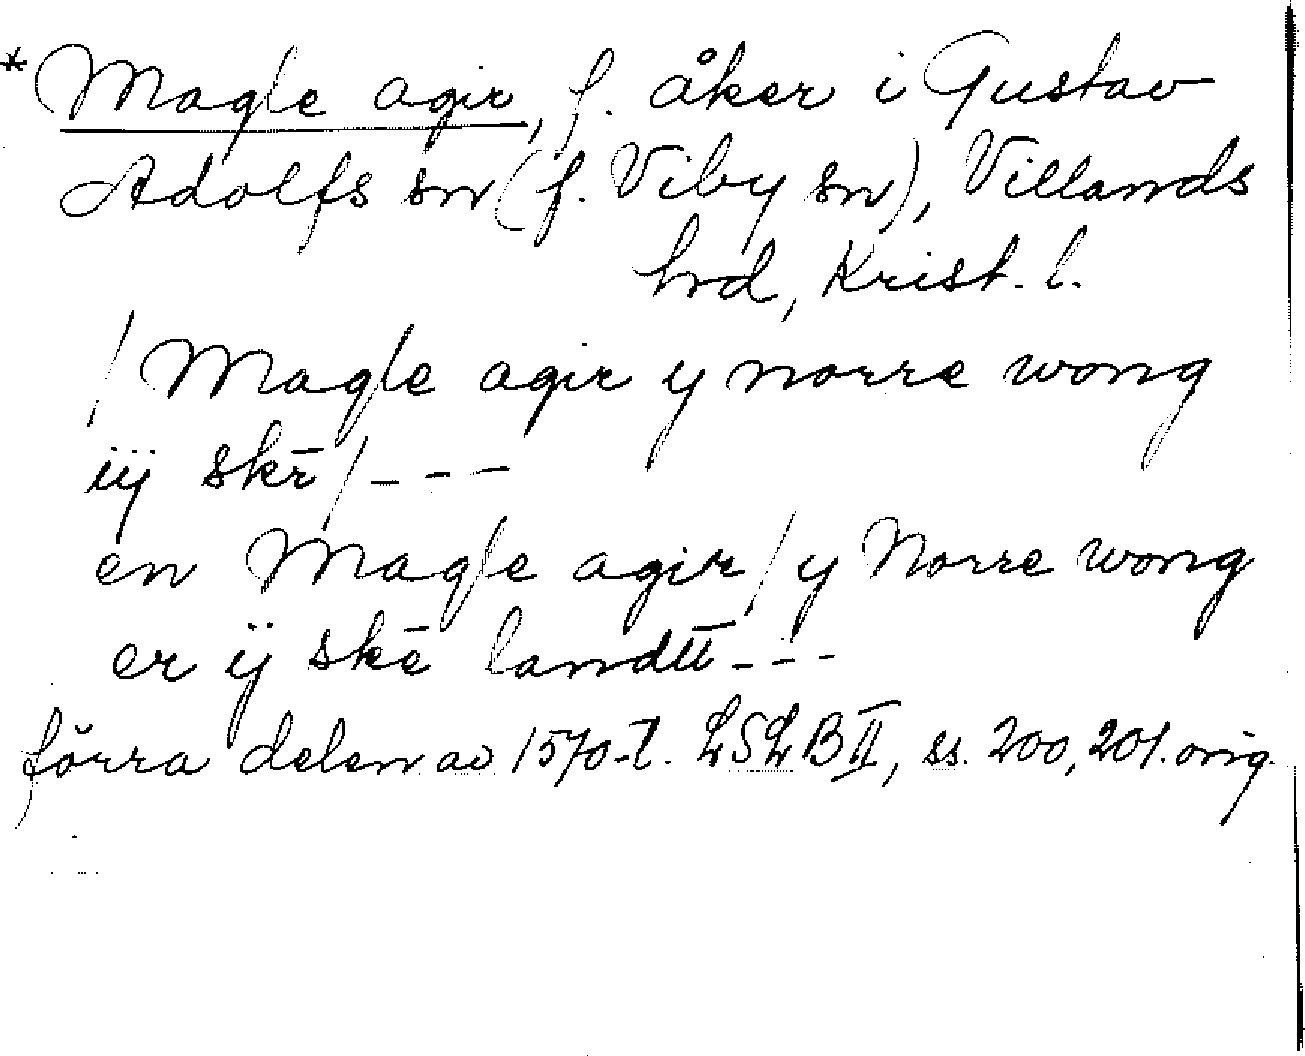 *Magle agir, f. åker i Gustav
Adolfs sn (f. Viby sn), Villands
hrd, Krist. l.
/ Magle agir y norre wong
iij skr̄ / - - -
en Magle agir / y Norre wong
er ij skē landtt - - -
förra delen av 1570-t. LSLB II, ss. 200, 201. orig.